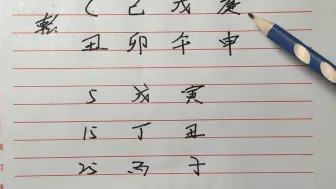 乾 乙 己 戊 庚
丑 卯 午 申
5 戊 寅
15 丁 丑
25 丙 子